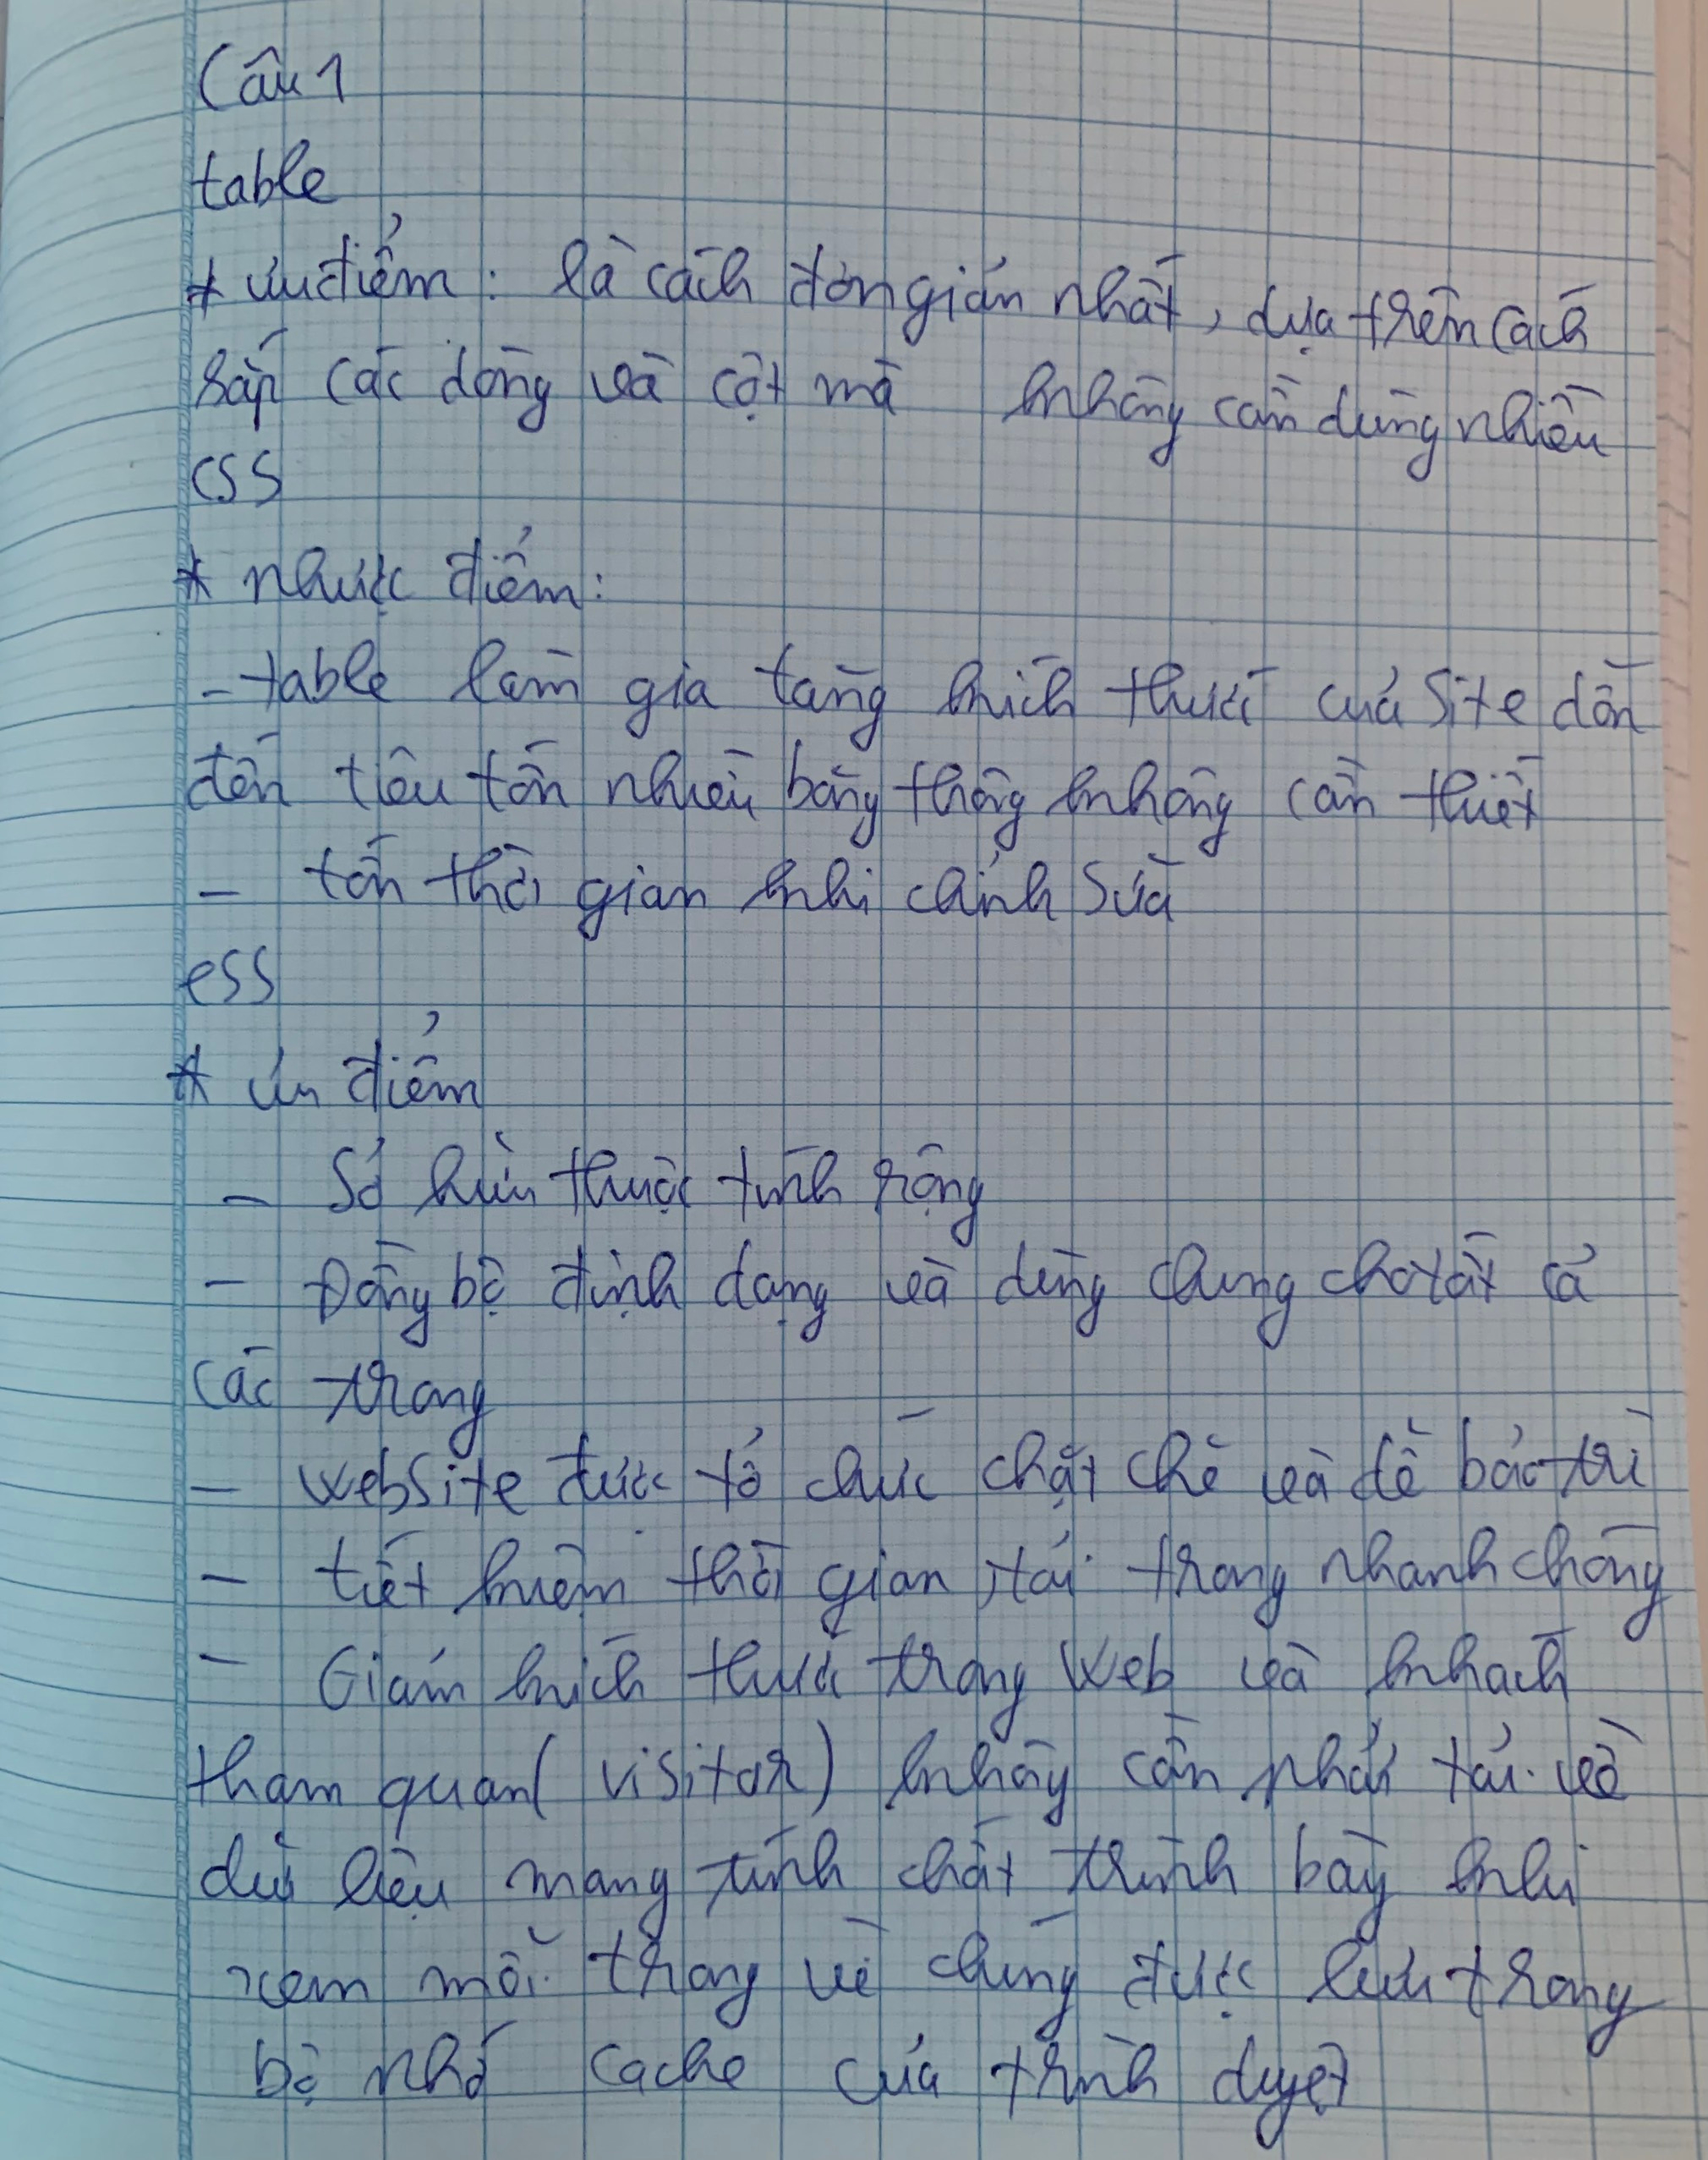 Câu 1
table
* ưu điểm : là cách đơn giản nhất, dựa trên cách
sắp các dòng và cột mà không cần dùng nhiều
CSS
* nhược điểm:
- table làm gia tăng kích thước của Site dẫn
đến tiêu tốn nhiều băng thông không cần thiết
- tốn thời gian khi chỉnh sửa
CSS
* ưu điểm
- Sở hữu thuộc tính rộng
- Đồng bộ định dạng và dùng chung cho tất cả
các trang
- website được tổ chức chặt chẽ và dễ bảo trì
- tiết kiệm thời gian, tải trang nhanh chóng
- Giảm kích thước trang Web và khách
tham quan( visitor) không cần phải tải về
dữ liệu mang tính chất trình bày khi
xem mỗi trang vì chúng được lưu trong
bộ nhớ cache của trình duyệt